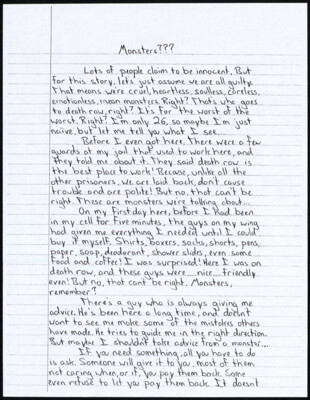 Monsters???
Lots of people claim to be innocent. But
for this story, lets just assume we are all guilty.
That means we're cruel, heartless, soulless, careless,
emotionless, mean monsters. Right? That's who goes
to death row, right? It's for the worst of the
worst. Right? I'm only 26, so maybe I'm just
naive, but let me tell you what I see......
Before I even got here, There were a few
guards at my jail that used to work here, and
They told me about it. They said death row is
the best place to work! Because, unlike all the
other prisoners, we are laid back, don't cause
trouble and are polite! But no, that can't be
right. These are monsters we're talking about...
On my first day here, before I had been
in my cell for five minutes, the guys on my wing
had given me everything I needed until I could
buy it myself. Shirts, boxers, socks, shorts, pens,
paper, soap, deodorant, shower slides, even some
food and coffee! I was surprised! Here I was on
death row, and these guys were....nice....friendly
even! But no, that cant be right. Monsters,
remember?
There's a guy who is always giving me
advice. He's been here a long time, and doesn't
want to see me make some of the mistakes others
have made. He tries to guide me in the right direction.
But maybe I shouldn't take advice from a monster...
If you need something, all you have to do
is ask. Someone will give it to you, most of them
not caring when, or if, you pay them back. Some
even refuse to let you pay them back. It doesn't